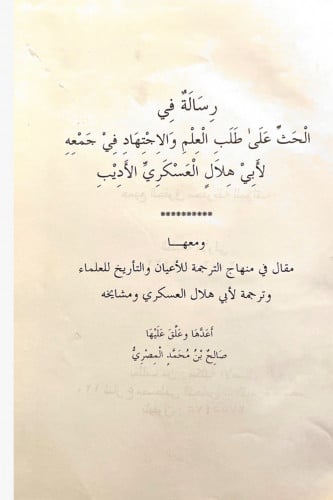 رِسَالَةٌ فِي
الْحَثِّ عَلَىٰ طَلَبِ الْعِلْمِ وَالاِجْتِهَادِ فِيْ جَمْعِهِ
لأَبِيْ هِلَالٍ الْعَسْكَرِيِّ الأَدِيْبِ
**********
ومعهـا
مقال في منهاج الترجمة للأعيان والتأريخ للعلماء
وترجمة لأبي هلال العسكري ومشايخه
أَعَدَّهَا وعَلَّقَ عَلَيْهَا
صَالِحُ بْنُ مُحَمَّدٍ الْمِصْرِيُّ